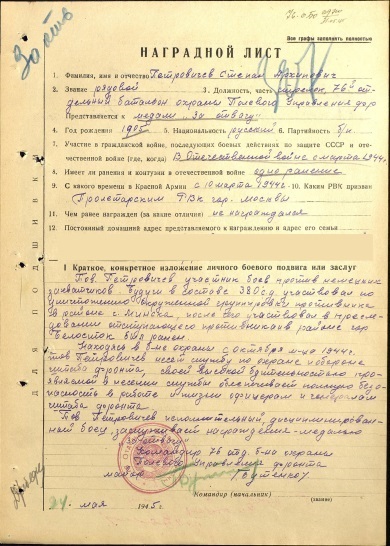 За отв
Все графы заполнять полностью
НАГРАДНОЙ ЛИСТ
1. Фамилия, имя и отчество Петровичев Степан Архипович
2. Звание рядовой 3. Должность, часть стрелок, 76й от-
дельный батальон охраны Полевого Управления фр
Представляется к медали "За отвагу"
4. Год рождения 1905 5. Национальность русский 6. Партийность б/п
7. Участие в гражданской войне, последующих боевых действиях по защите СССР и оте-
чественной войне (где, когда) в Отечественной войне с марта 1944г.
8. Имеет ли ранения и контузии в отечественной войне одно ранение
9. С какого времени в Красной Армии с 10 марта 1944г. 10. Каким РВК призван
Пролетарским РВК гор. Москвы
11. Чем ранее награжден (за какие отличия) не награждался
12. Постоянный домашний адрес представляемого к награждению и адрес его семьи
I Краткое, конкретное изложение личного боевого подвига или заслуг
Тов. Петровичев участник боев против немецких
захватчиков. Будучи в составе 380 сд. участвовал по
уничтожению окруженной группировки противника
в районе г. Минска, после чего участвовал в пресле-
довании отступающего противника в районе гор.
Белосток был ранен.
Находясь в б-не охраны с октября м-ца 1944г.
тов Петровичев несет службу по охране и обороне
штаба фронта, своей высокой бдительностью про-
являемой в несении службы обеспечивает полную безо-
пасность в работе и жизни офицерам и генералам
штаба фронта.
Тов. Петровичев исполнительный, дисциплинирован-
ный боец, заслуживает награждения - медалью
"За отвагу"
Командир 76 отд. б-на охраны
Полевого Управления фронта
майор
Командир (начальник)
(звание)
24 мая 1945 г.
ДЛЯ ПОДШИВКИ